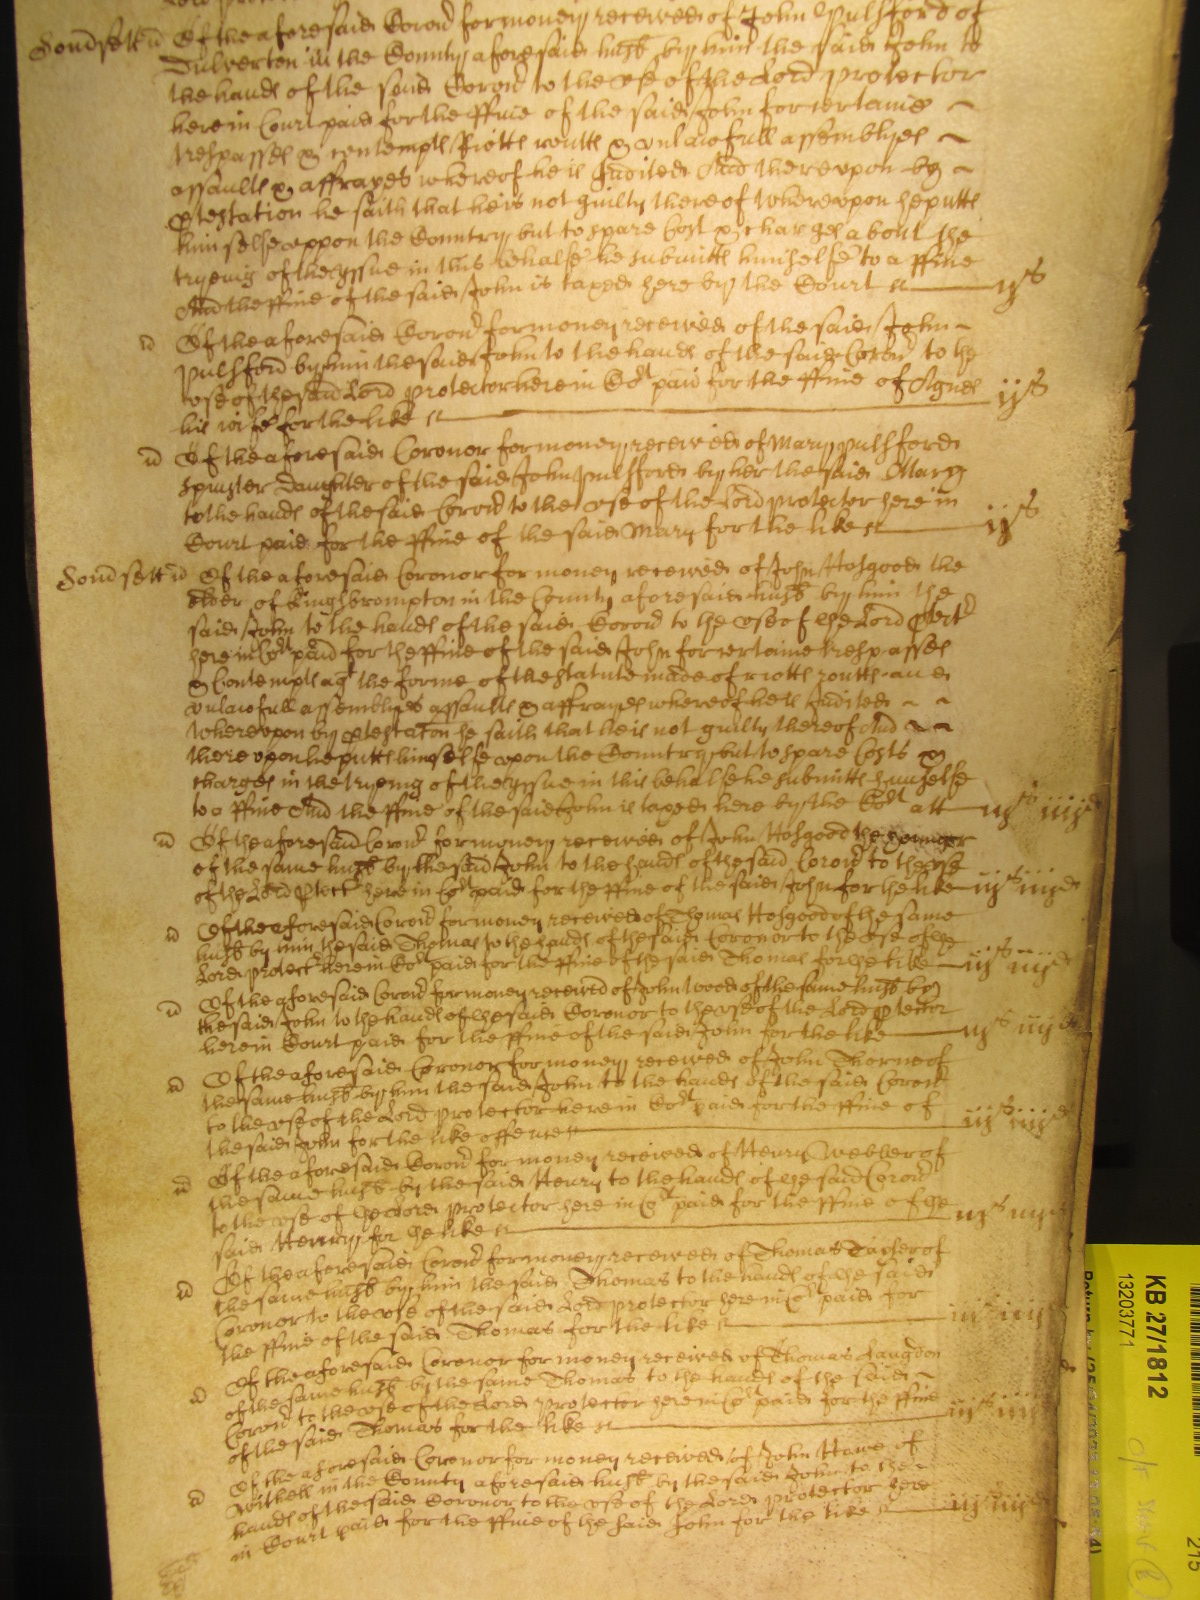 Somdsett ss Of the aforesaid Coron^r for money received of John Pulsford of
Dulverton in the County aforesaid husb by him the said John to
the hands of the said Coron^r to the use of the Lord Protector
here in Court paid for the ffine of the said John for certaine
trespasses & contempts Riotts routts & unlawfull assemblyes
assaults & affrayes whereof he is Indited And thereupon by
ptestation he saith that he is not guilty thereof whereupon he putts
himselfe uppon the Country but to spare Cost & charges about the
tryeing of the yssue in this behalfe he submitts himselfe to a ffine
And the ffine of the said John is taxed here by the Court iij^s
ss Of the aforesaid Coron^r for money received of the said John
Pulsford by him the said John to the hands of the said Coron^r to the
use of the said Lord Protector here in Co^rt paid for the ffine of Agnes
his wife for the like ij^s
ss Of the aforesaid Coronor for money received of Mary Pulsford
Spinster daughter of the said John Pulsford by her the said Mary
to the hands of the said Coron^r to the use of the Lord Protector here in
Court paid for the ffine of the said Mary for the like ij^s
Somdsett ss Of the aforesaid Coronor for money received of John Hosgood the
elder of Kingsbrompton in the County aforesaid husb by him the
said John to the hands of the said Coron^r to the use of the Lord Ptect^r
here in Co^rt paid for the ffine of the said John for certaine trespasses
& Contempts ag^t the forme of the statute made of riotts routts and
unlawfull assemblyes assaults & affrayes whereof he is Indited
whereupon by ptestaton he saith that he is not guilty thereof And
thereupon he putts himselfe upon the Country but to spare Costs &
charges in the tryeing of the yssue in this behalfe he submitts himselfe
to a ffine And the ffine of the said John is taxed here by the Co^rt att iij^s iiij^d
ss Of the aforesaid Coron^r for money received of John Hosgood the younger
of the same husb by the said John to the hands of the said Coron^r to the use
of the Lord Ptect^r here in Co^rt paid for the ffine of the said John for the like iij^s iiij^d
ss Of the aforesaid Coron^r for money received of Thomas Hosgood of the same
husb by him the said Thomas to the hands of the said Coronor to the use of the
Lord Protect^r here in Co^rt paid for the ffine of the said Thomas for the like iij^s iiij^d
ss Of the aforesaid Coron^r for money received of John Wood of the same husb by
the said John to the hands of the said Coronor to the use of the Lord Ptector
here in Court paid for the ffine of the said John for the like iij^s iiij^d
ss Of the aforesaid Coronor for money received of John Thorne of
the same husb by him the said John to the hands of the said Coron^r
to the use of the Lord Protector here in Co^rt paid for the ffine of
the said John for the like offence iij^s iiij^d
ss Of the aforesaid Coron^r for money received of Henry Webber of
the same husb by the said Henry to the hands of the said Coron^r
to the use of the Lord Protector here in Co^rt paid for the ffine of the
said Henry for the like iij^s iiij^d
ss Of the aforesaid Coron^r for money received of Thomas Tayler of
the same husb by him the said Thomas to the hands of the said
Coronor to the use of the said Lord Protector here in Co^rt paid for
the ffine of the said Thomas for the like iij^s iiij^d
ss Of the aforesaid Coronor for money received of Thomas Langdon
of the same husb by the same Thomas to the hands of the said
Coron^r to the use of the Lord Protector here in Co^rt paid for the ffine
of the said Thomas for the like iij^s iiij^d
ss Of the aforesaid Coronor for money received of John Howe of
in the County aforesaid husb by the said John to the
hands of the said Coronor to the use of the Lord Protector here
in Court paid for the ffine of the said John for the like iij^s iiij^d
KB 27/1812
13203771
215